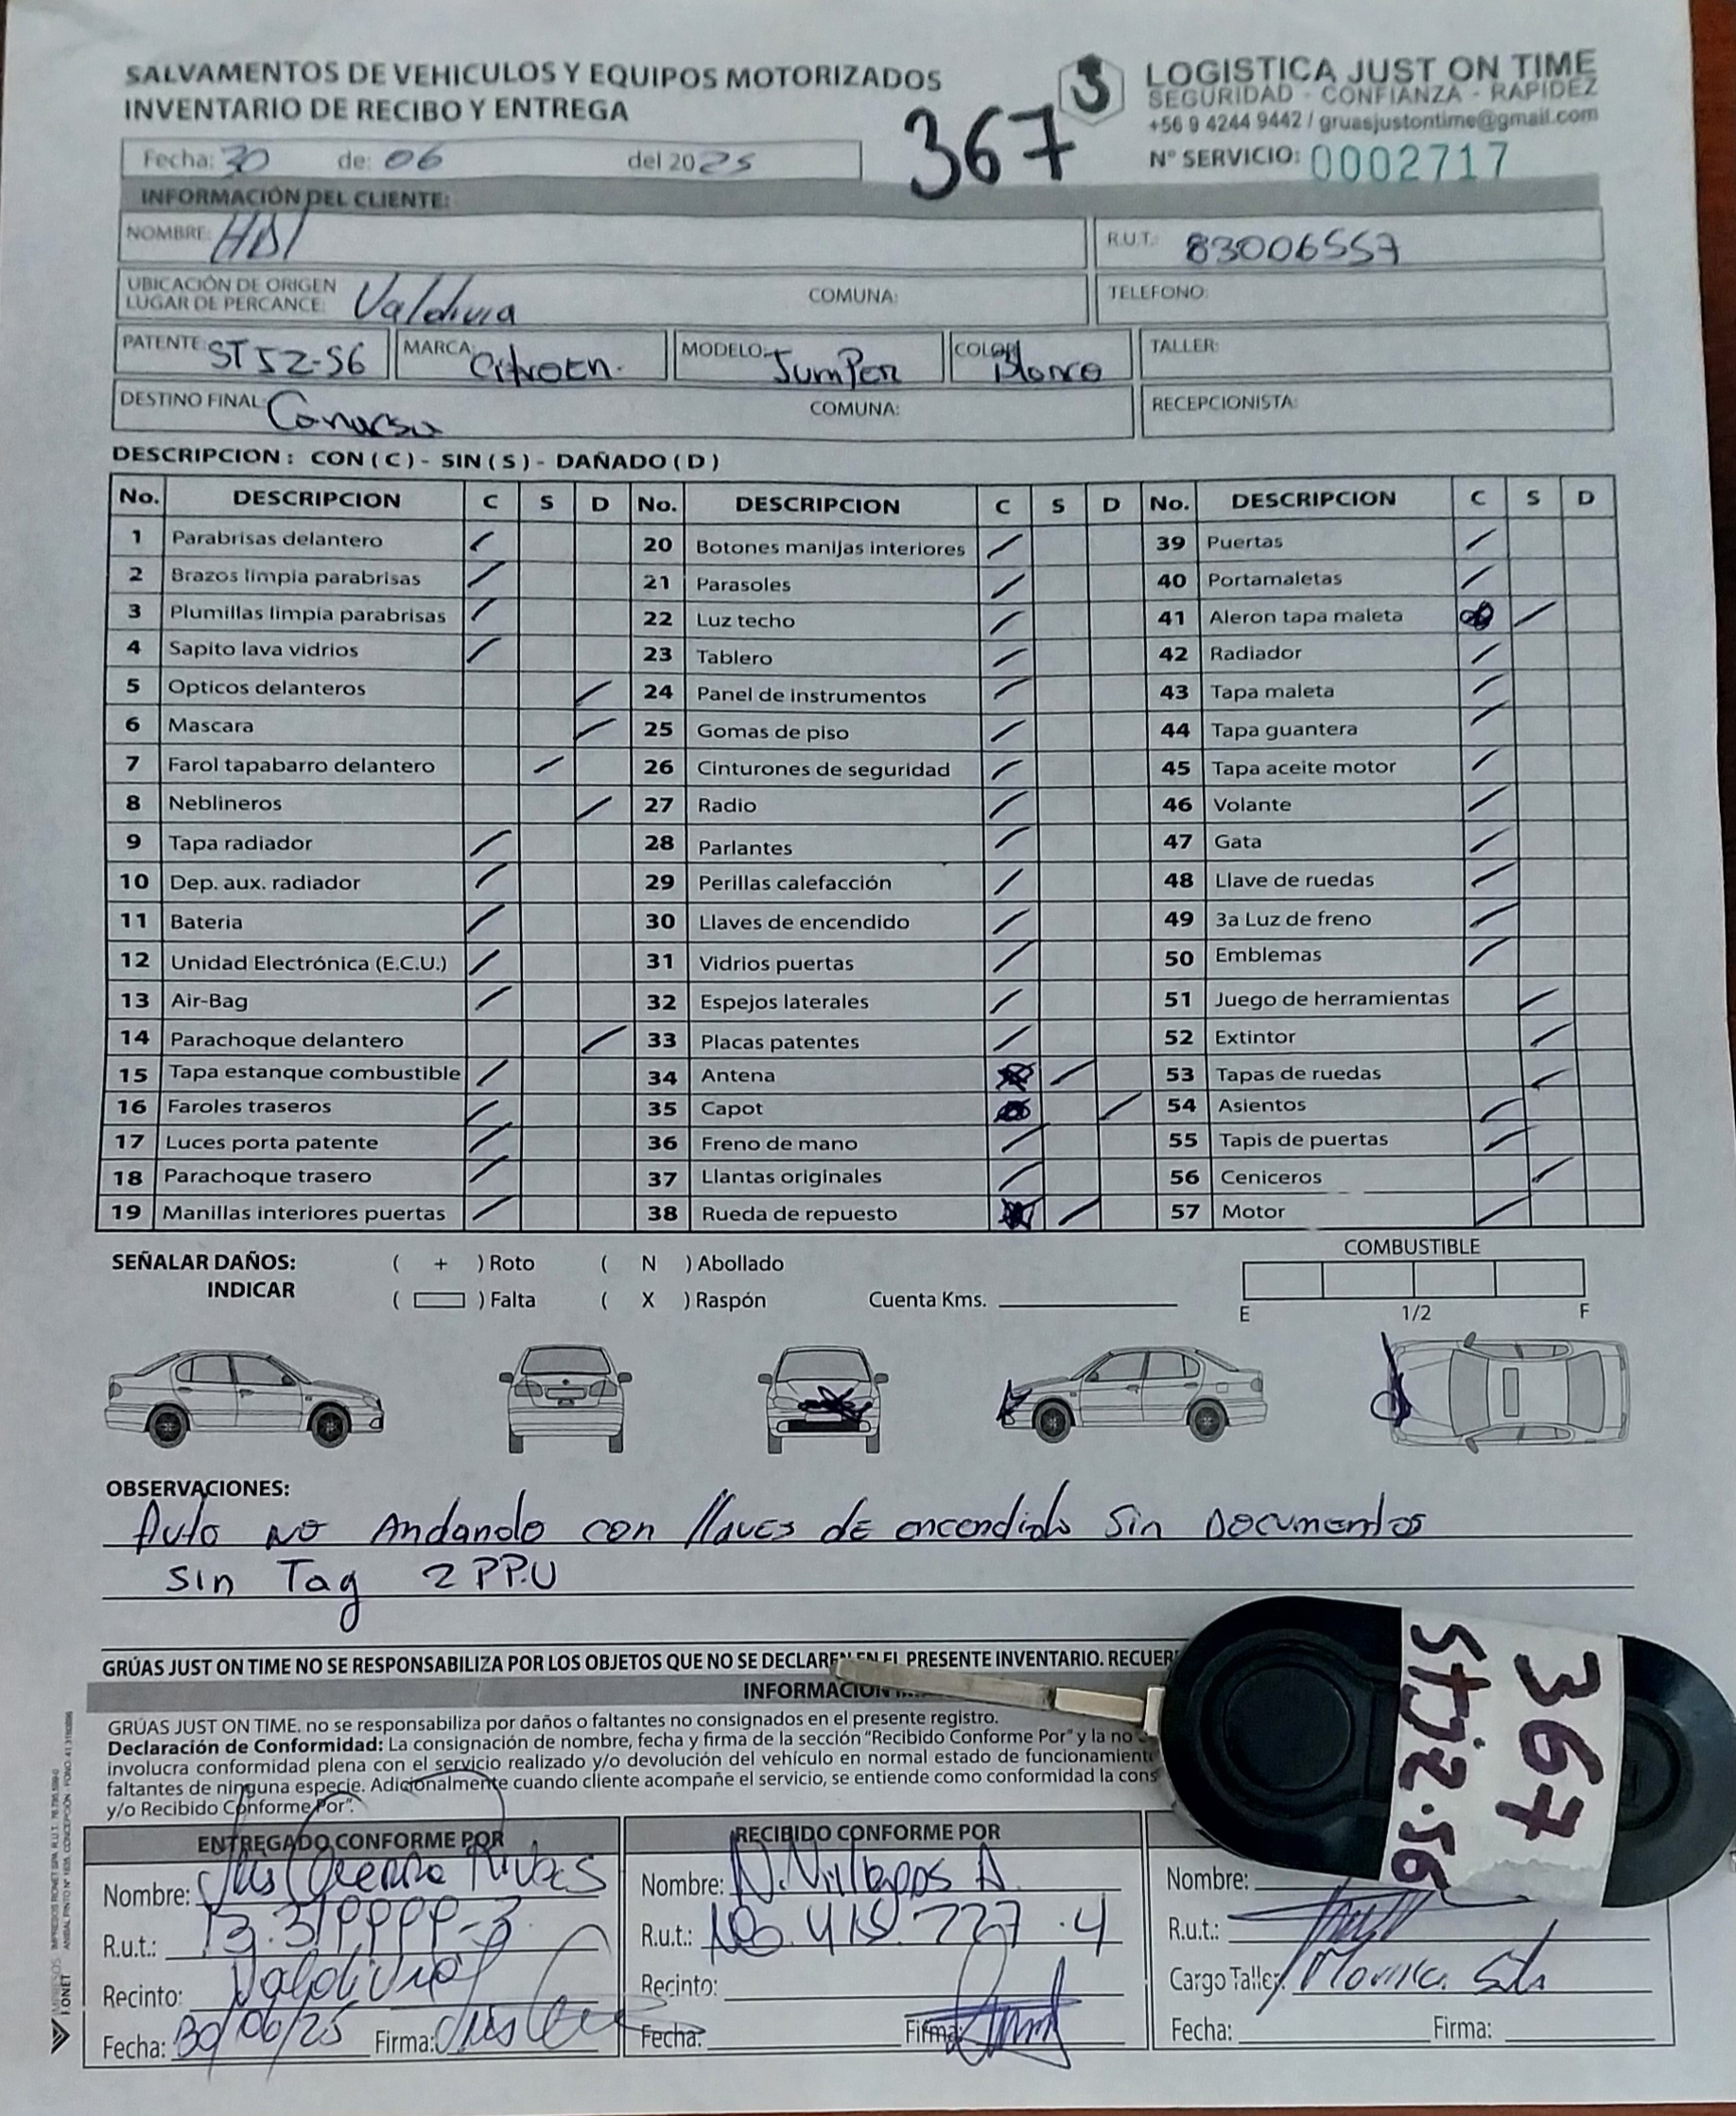 SALVAMENTOS DE VEHICULOS Y EQUIPOS MOTORIZADOS
INVENTARIO DE RECIBO Y ENTREGA
367
LOGISTICA JUST ON TIME
SEGURIDAD - CONFIANZA - RAPIDEZ
+56 9 4244 9442 / gruasjustontime@gmail.com
N° SERVICIO: 0002717
Fecha: 30 de: 06 del 2025
INFORMACIÓN DEL CLIENTE:
NOMBRE: HDI R.U.T.: 83006557
UBICACIÓN DE ORIGEN
LUGAR DE PERCANCE: Valdivia COMUNA: TELEFONO:
PATENTE: STJZ-56 MARCA: Citroen. MODELO: JumPer COLOR: Blanco TALLER:
DESTINO FINAL: COMUNA: RECEPCIONISTA:
DESCRIPCION : CON ( C ) - SIN ( S ) - DAÑADO ( D )
No. DESCRIPCION C S D No. DESCRIPCION C S D No. DESCRIPCION C S D
1 Parabrisas delantero 20 Botones manijas interiores 39 Puertas
2 Brazos limpia parabrisas 21 Parasoles 40 Portamaletas
3 Plumillas limpia parabrisas 22 Luz techo 41 Aleron tapa maleta
4 Sapito lava vidrios 23 Tablero 42 Radiador
5 Opticos delanteros 24 Panel de instrumentos 43 Tapa maleta
6 Mascara 25 Gomas de piso 44 Tapa guantera
7 Farol tapabarro delantero 26 Cinturones de seguridad 45 Tapa aceite motor
8 Neblineros 27 Radio 46 Volante
9 Tapa radiador 28 Parlantes 47 Gata
10 Dep. aux. radiador 29 Perillas calefacción 48 Llave de ruedas
11 Bateria 30 Llaves de encendido 49 3a Luz de freno
12 Unidad Electrónica (E.C.U.) 31 Vidrios puertas 50 Emblemas
13 Air-Bag 32 Espejos laterales 51 Juego de herramientas
14 Parachoque delantero 33 Placas patentes 52 Extintor
15 Tapa estanque combustible 34 Antena 53 Tapas de ruedas
16 Faroles traseros 35 Capot 54 Asientos
17 Luces porta patente 36 Freno de mano 55 Tapis de puertas
18 Parachoque trasero 37 Llantas originales 56 Ceniceros
19 Manillas interiores puertas 38 Rueda de repuesto 57 Motor
SEÑALAR DAÑOS: ( + ) Roto ( N ) Abollado COMBUSTIBLE
INDICAR ( ) Falta ( X ) Raspón Cuenta Kms. E 1/2 F
OBSERVACIONES:
Auto NO Andando con llaves de encendido Sin Documentos
Sin Tag 2 PP.U
GRÚAS JUST ON TIME NO SE RESPONSABILIZA POR LOS OBJETOS QUE NO SE DECLAREN EN EL PRESENTE INVENTARIO. RECUER
INFORMACIÓN
GRÚAS JUST ON TIME. no se responsabiliza por daños o faltantes no consignados en el presente registro.
Declaración de Conformidad: La consignación de nombre, fecha y firma de la sección "Recibido Conforme Por" y la no
involucra conformidad plena con el servicio realizado y/o devolución del vehículo en normal estado de funcionamient
faltantes de ninguna especie. Adicionalmente cuando cliente acompañe el servicio, se entiende como conformidad la cons
y/o Recibido Conforme Por".
367
STJZ.56
ENTREGADO CONFORME POR RECIBIDO CONFORME POR
Nombre: Rivas Nombre: N. Villagos A. Nombre:
R.u.t.: R.u.t.: R.u.t.:
Recinto: Valdivia Recinto: Cargo Taller:
Fecha: 30/06/25 Firma: Fecha: Firma: Fecha: Firma: